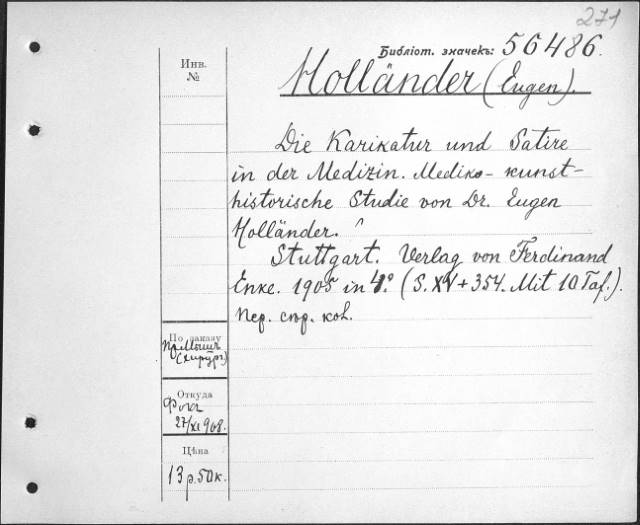 271
Библіот. значекъ: 56486.
Инв. №
Holländer (Eugen).
Die Karikatur und Satire
in der Medizin. Mediko-kunst-
historische Studie von Dr. Eugen
Holländer.
Stuttgart. Verlag von Ferdinand
Enke. 1905 in 4º. (S. XV+354. Mit 10 Taf.).
Пер. спр. кож.
По заказу
(хирург)
Откуда
27/XI 908.
Цѣна
13 р. 50 к.